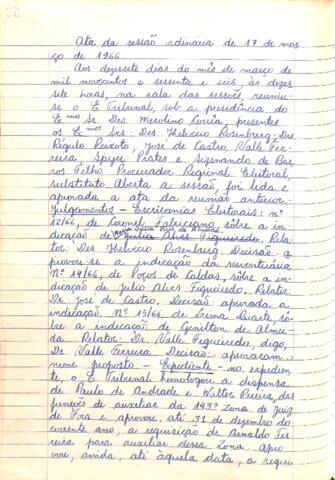 Ata da sessão ordinaria de 17 de mar
ço de 1966
Aos dezessete dias do mês de março de
mil novecentos e sessenta e seis, às dezes
sete horas, na sala das sessões, reuniu-
se o E. Tribunal, sob a presidência do
Exmo Sr. Des. Merolino Corrêa, presentes
os Exmos Srs: Des. Helvecio Rosenburg; Drs.
Régulo Peixoto, José de Castro, Valle Fer-
reira, Spyer Prates e Sizenando de Bar-
ros Filho, Procurador Regional Eleitoral,
substituto. Aberta a sessão, foi lida e
aprovada a ata da reunião anterior.
Julgamentos - Escrivanias Eleitorais: nº
12/66, de Coronel Fabriciano, sôbre a in-
dicação de Julio Alves Figueiredo. Rela-
tor: Des. Helvecio Rosenburg. Decisão: a
provou-se a indicação da serventuária
Nº 14/66, de Poços de Caldas, sôbre a in-
dicação de Julio Alves Figueiredo. Relator:
Dr. José de Castro. Decisão: aprovada a
indicação. Nº 15/66, de Lima Duarte, sô-
bre a indicação de Genilton de Almei-
da. Relator: Dr. Valle Figueiredo, digo,
Dr. Valle Ferreira. Decisão: aprovaram
nome proposto - Expediente - no expedien-
te, o E. Tribunal homologou a dispensa
de Paulo de Andrade e Walter Pereira, das
funções de auxiliar da 143ª Zona de Juiz
de Fora e aprovou, até 31 de dezembro do
corrente ano, a requisição de Arnaldo Fer
reira para auxiliar dessa Zona. Apro
vou, ainda, até àquela data, a requi